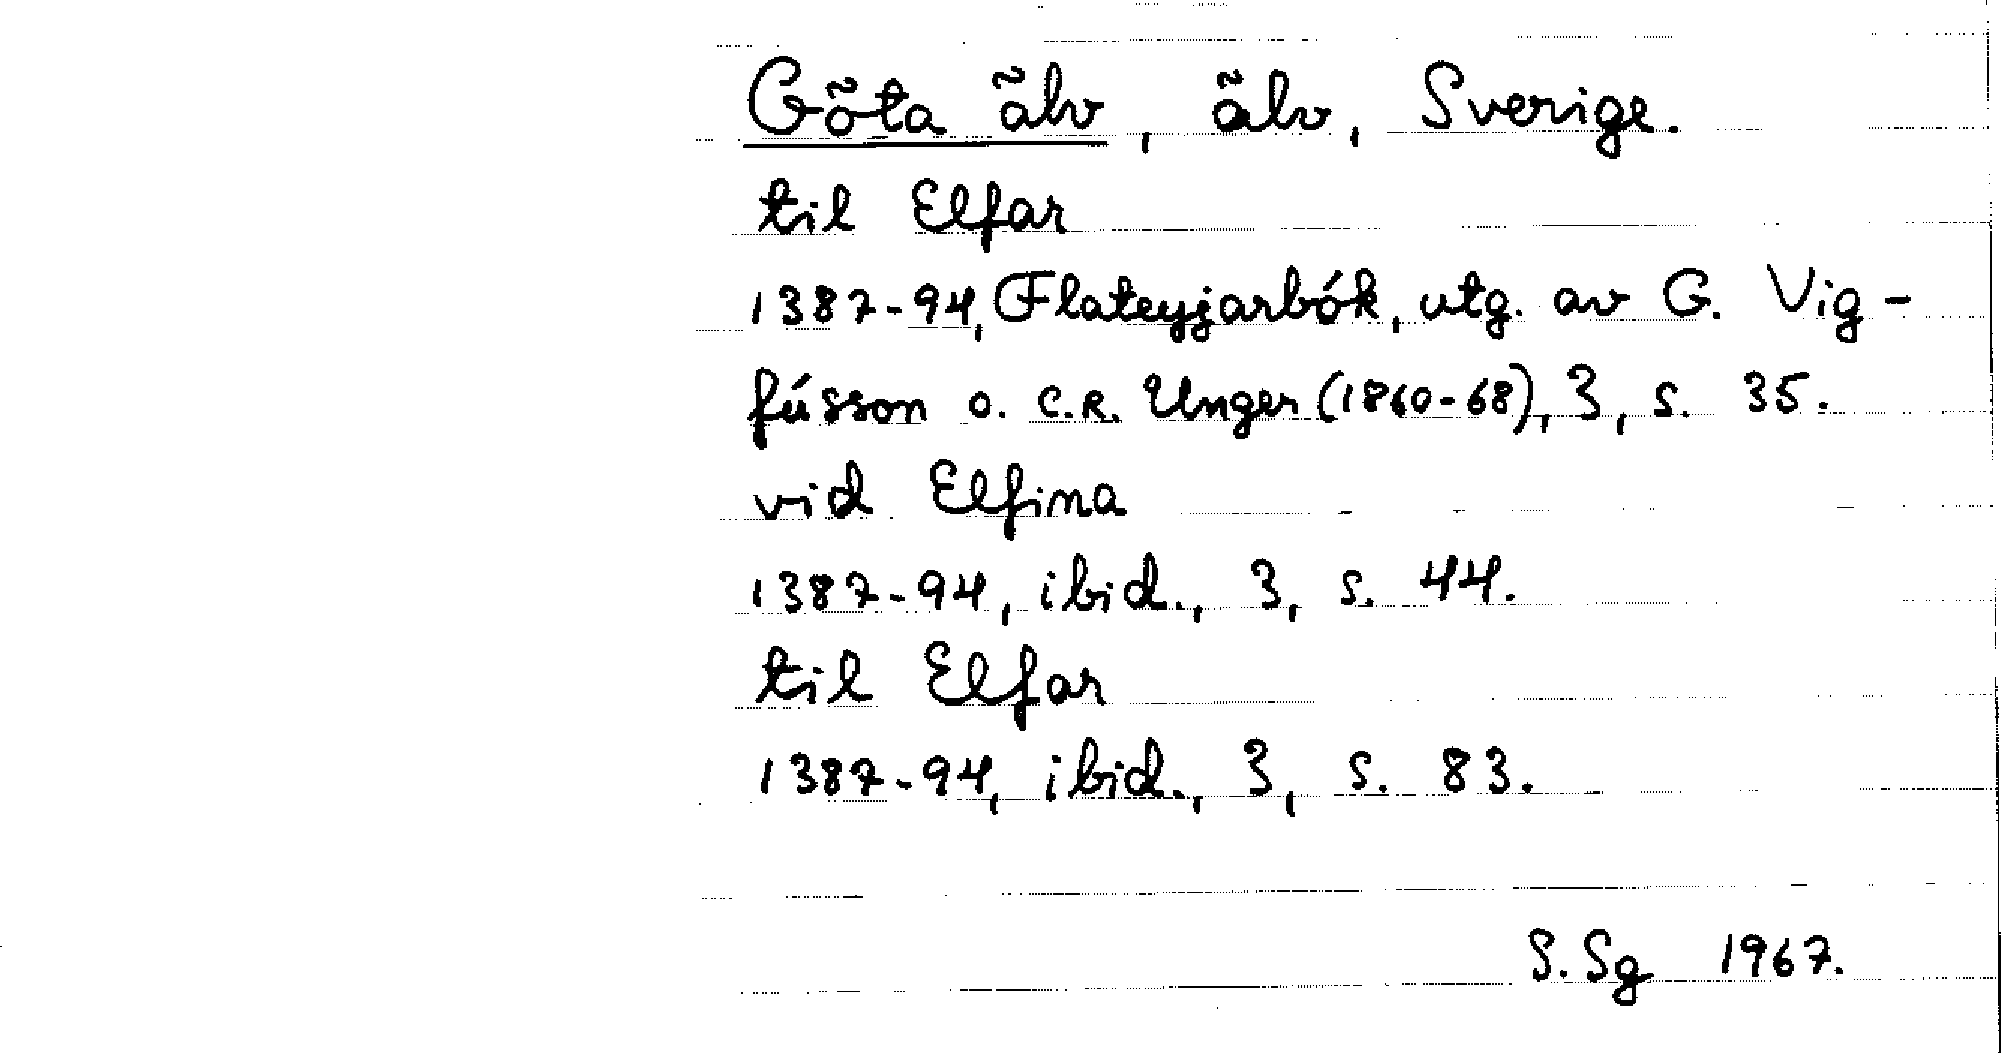 Göta älv, älv, Sverige.
til Elfar
1387-94, Flateyjarbók, utg. av G. Vig-
fússon o. C.R. Unger (1860-68), 3, s. 35.
vid Elfina
1387-94, ibid., 3, s. 44.
til Elfar
1387-94, ibid., 3, s. 83.
S. Sg 1967.